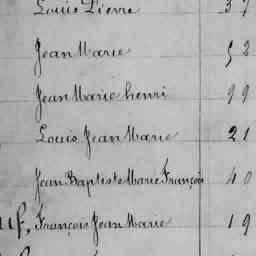 Louis Pierre 37
Jean Marie 52
Jean Marie henri 99
Louis Jean Marie 21
Jean Baptiste Marie François 40
François Jean Marie 19